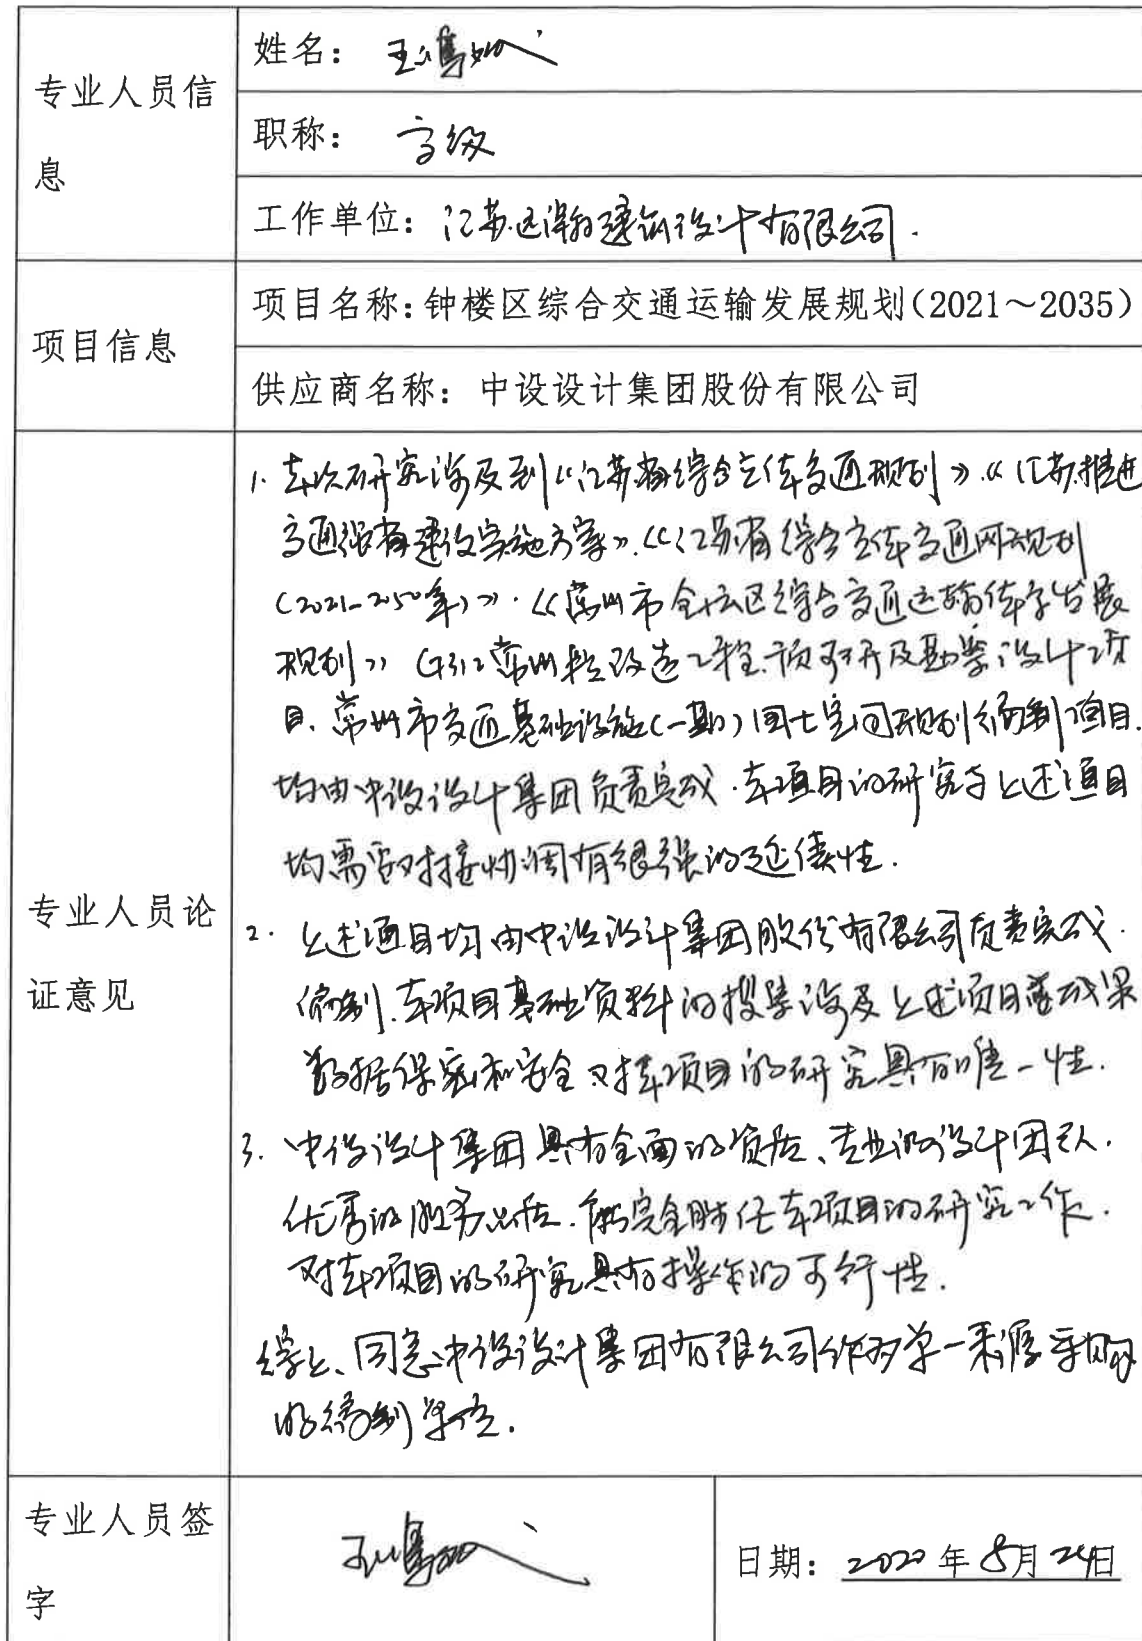 专业人员信息
姓名：
职称：高级
工作单位：江苏远瀚建筑设计有限公司.
项目信息
项目名称:钟楼区综合交通运输发展规划(2021～2035)
供应商名称：中设设计集团股份有限公司
专业人员论证意见
1. 本次研究涉及到《江苏省综合立体交通规划》.《江苏推进
交通强省建设实施方案》.《江苏省综合立体交通网规划
(2021-2050年)》.《常州市全域综合交通运输体系发展
规划》 G312常州段改造工程预可研及勘察设计项
目、常州市交通基础设施(一期)国土空间规划编制项目.
均由中设设计集团负责完成.本项目的研究与上述项目
均需要对接协调有很强的延续性.
2. 上述项目均由中设设计集团股份有限公司负责完成.
编制.本项目基础资料的搜集涉及上述项目成果
数据保密和安全对本项目的研究具有唯一性.
3. 中设设计集团具有全面的资质、专业的设计团队.
优秀的服务品质.能完全胜任本项目的研究工作.
对本项目的研究具有操作的可行性.
综上、同意中设设计集团有限公司作为单一来源采购
的编制单位.
专业人员签字
日期：2020年8月24日